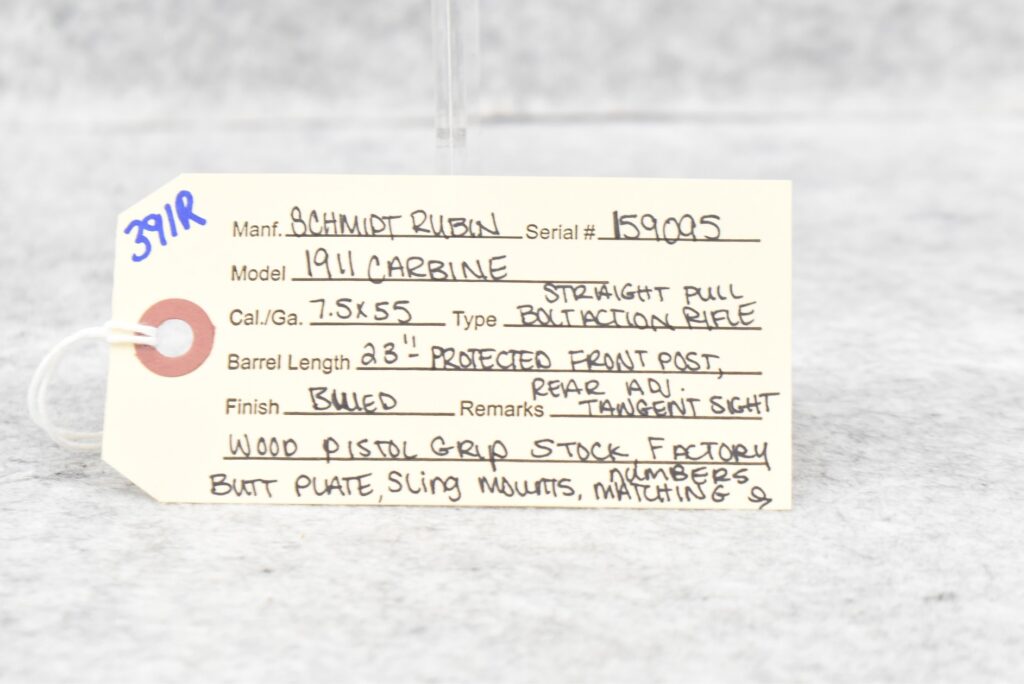 391R
Manf. SCHMIDT RUBIN Serial # 159095
Model 1911 CARBINE
STRAIGHT PULL
Cal./Ga. 7.5x55 Type BOLT ACTION RIFLE
Barrel Length 23" - PROTECTED FRONT POST,
REAR ADJ.
Finish BLUED Remarks TANGENT SIGHT
WOOD PISTOL GRIP STOCK, FACTORY
NUMBERS
BUTT PLATE, Sling MOUNTS, MATCHING